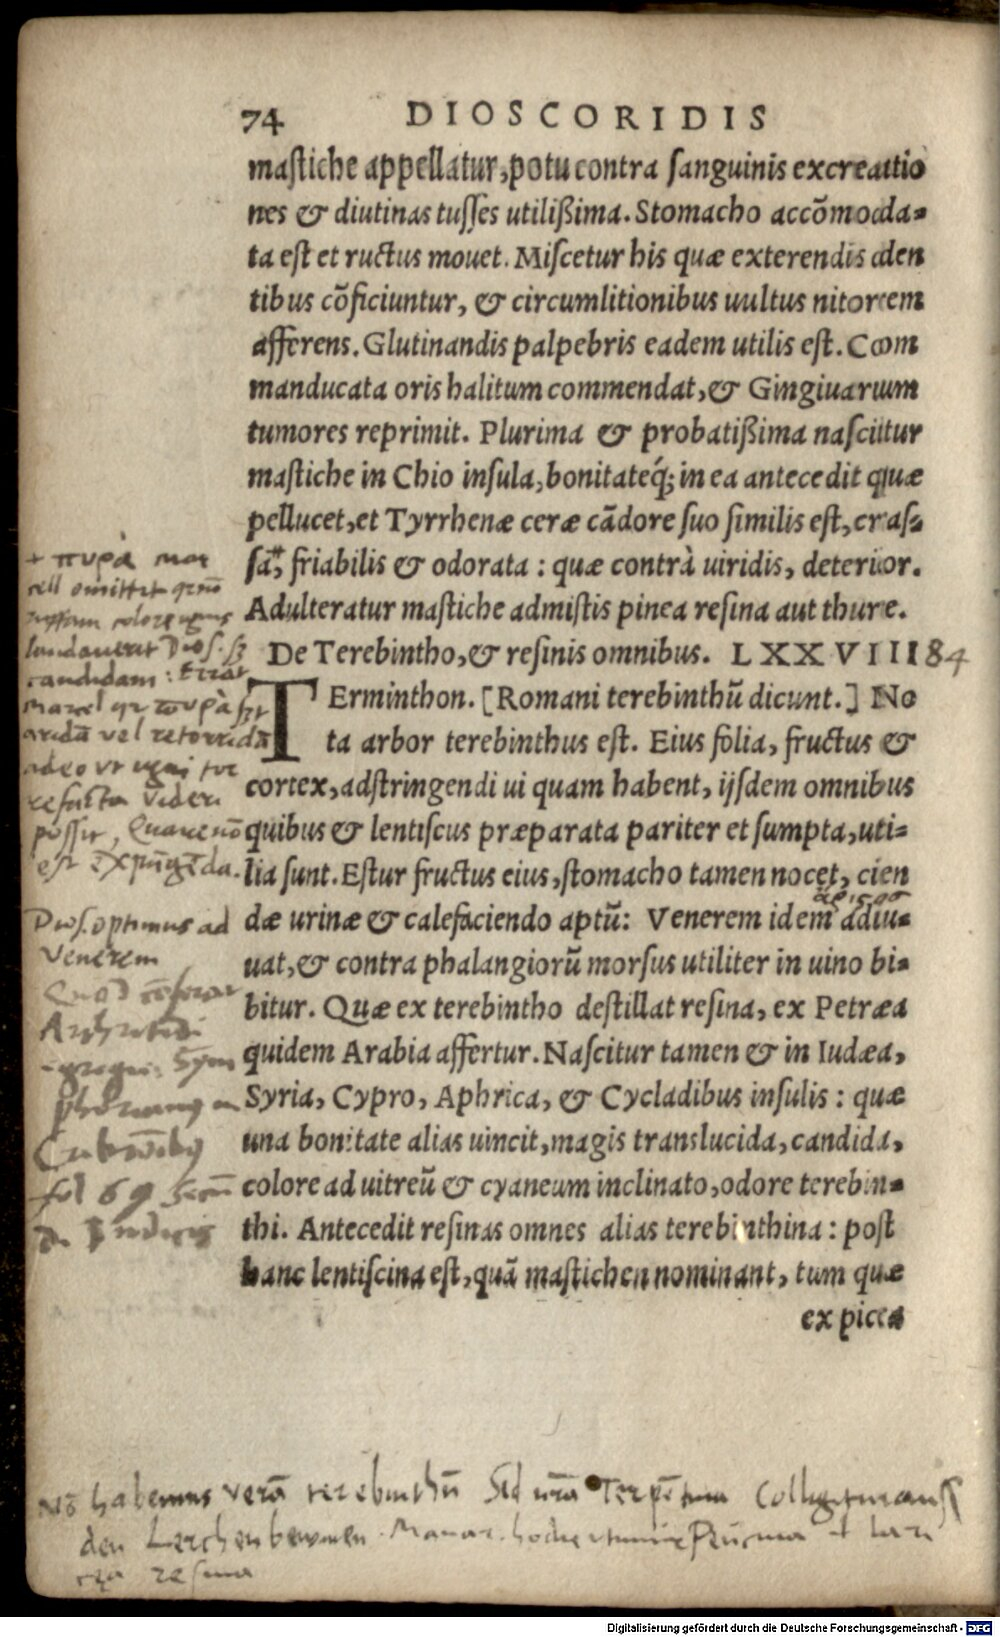 74 DIOSCORIDIS
maſtiche appellatur, potu contra ſanguinis excreatio
nes & diutinas tuſſes utilißima. Stomacho accõmoda-
ta eſt et ructus mouet. Miſcetur his quæ exterendis den
tibus cõficiuntur, & circumlitionibus uultus nitorem
afferens. Glutinandis palpebris eadem utilis eſt. Com
manducata oris halitum commendat, & Gingiuarum
tumores reprimit. Plurima & probatißima naſcitur
maſtiche in Chio inſula, bonitateq́; in ea antecedit quæ
pellucet, et Tyrrhenæ ceræ cãdore ſuo ſimilis eſt, craſ-
ſa, friabilis & odorata : quæ contrà uiridis, deterior.
Adulteratur maſtiche admiſtis pinea reſina aut thure.
De Terebintho, & reſinis omnibus. LXXVIII 84
TErminthon. [Romani terebinthũ dicunt.] No
ta arbor terebinthus eſt. Eius folia, fructus &
cortex, adſtringendi ui quam habent, ijſdem omnibus
quibus & lentiſcus præparata pariter et ſumpta, uti-
lia ſunt. Eſtur fructus eius, ſtomacho tamen nocet, cien
dæ urinæ & calefaciendo aptũ: Venerem idem adiu-
uat, & contra phalangiorũ morſus utiliter in uino bi-
bitur. Quæ ex terebintho deſtillat reſina, ex Petræa
quidem Arabia affertur. Naſcitur tamen & in Iudæa,
Syria, Cypro, Aphrica, & Cycladibus inſulis : quæ
una bonitate alias uincit, magis translucida, candida,
colore ad uitreũ & cyaneum inclinato, odore terebin-
thi. Antecedit reſinas omnes alias terebinthina : poſt
hanc lentiſcina eſt, quã maſtichen nominant, tum quæ
ex picea
+ πυρὰ mar
cell omittit
colore
laudauerit Dioſ.
candidam : Errat
Marcel
aridã vel retorridã
adeo vt igni tor
refacta videri
poſſit, Quare nõ
eſt expũgẽda.
Dioſ. optimus ad
Venerem
Quod
fol 69
Indicis
Nõ habemus verã terebinthũ Sed Colligitur auſſ
den Lerchenbewmen. reſina
Digitalisierung gefördert durch die Deutsche Forschungsgemeinschaft - DFG